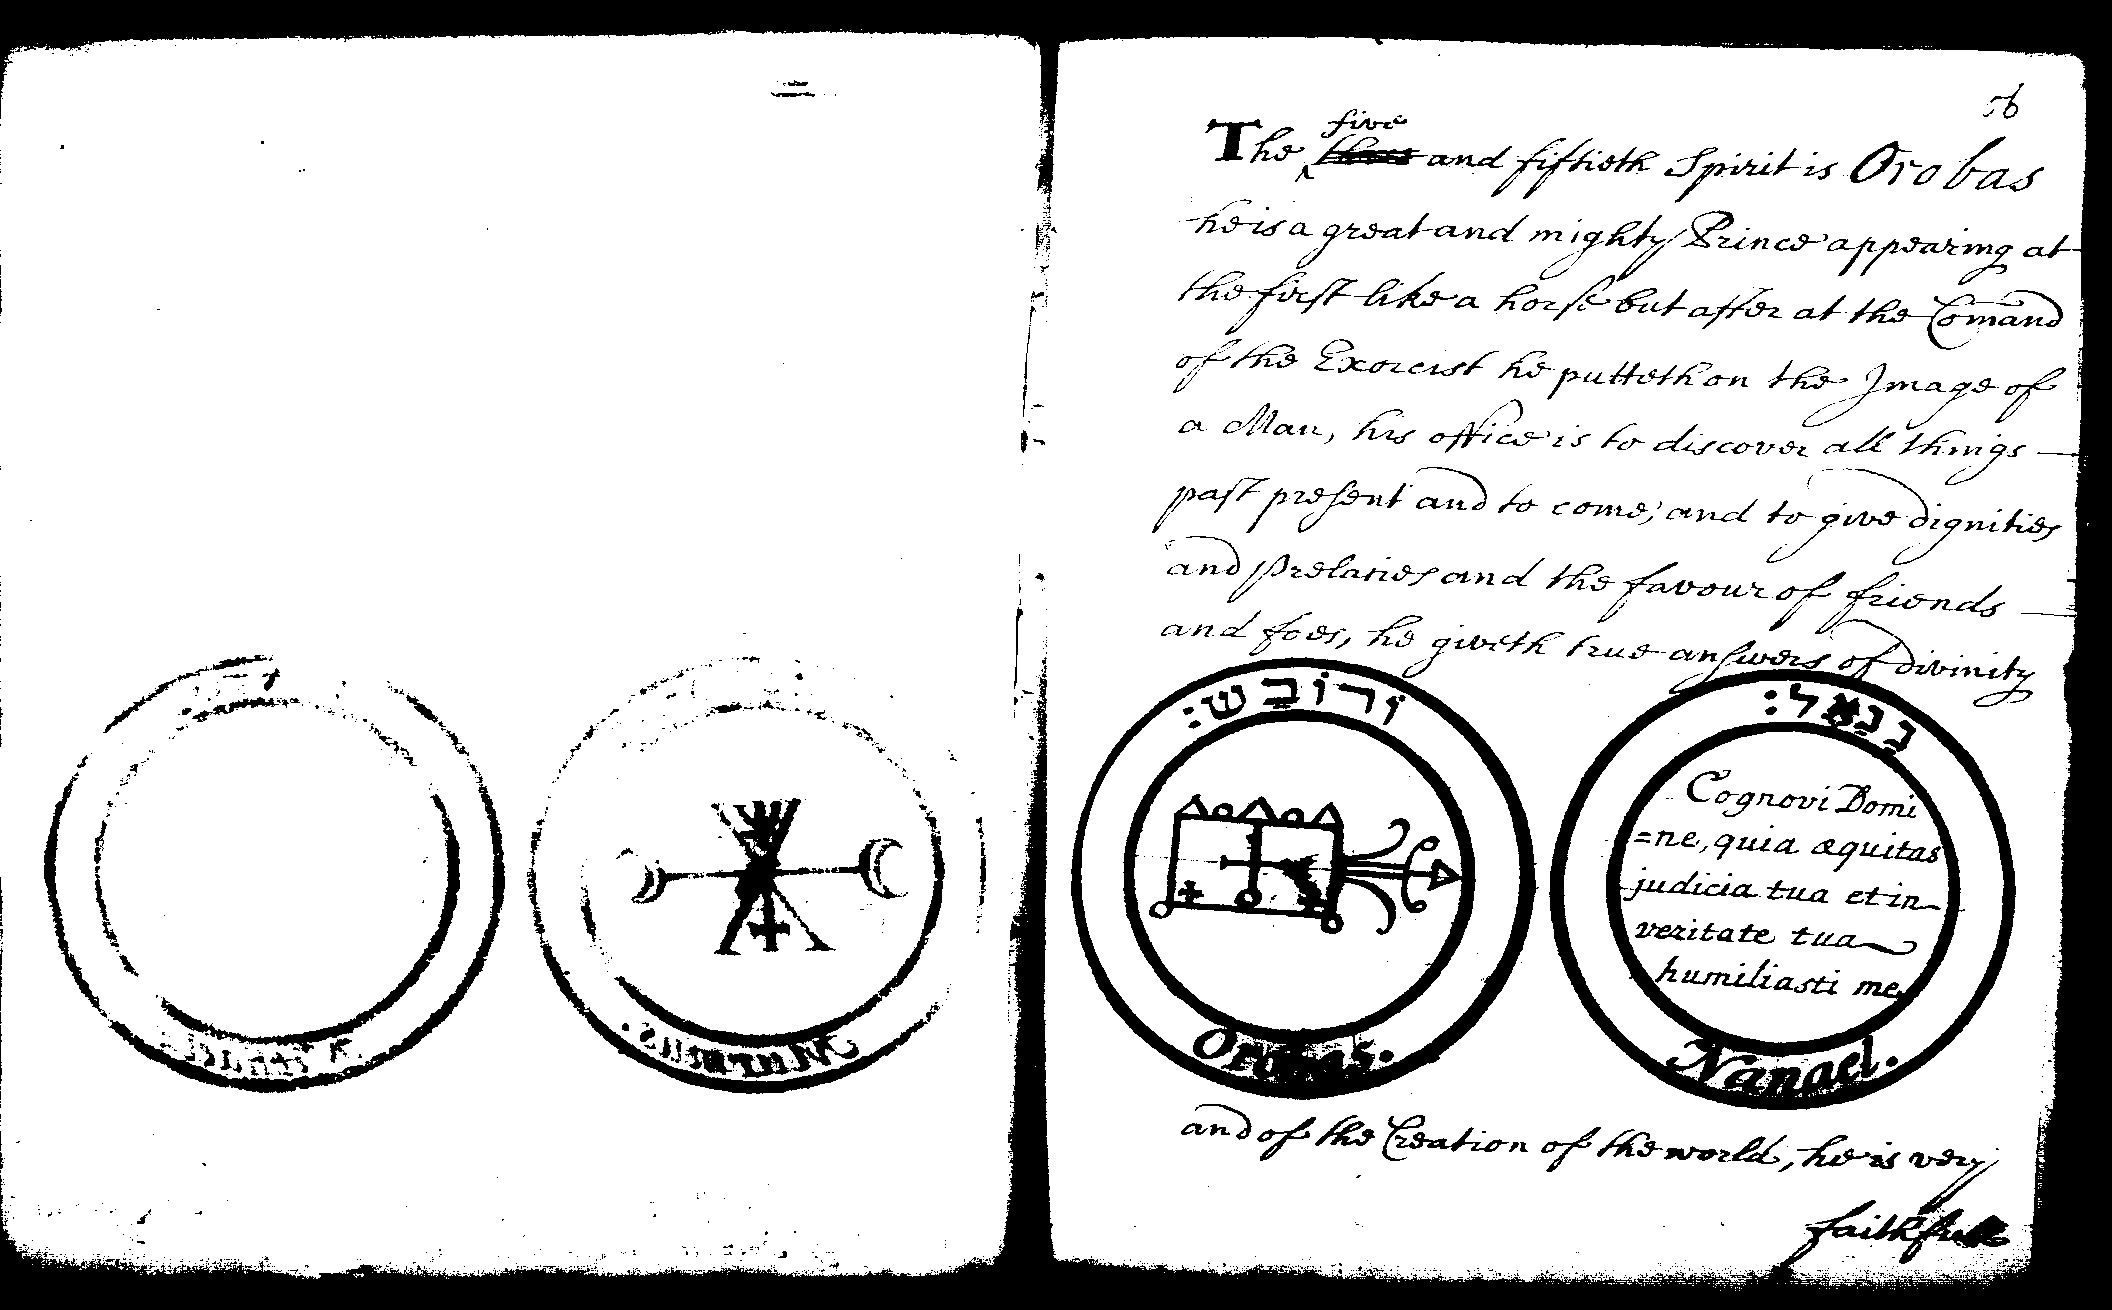 56
five
The three and fiftieth Spirit is Orobas
he is a great and mighty Prince appearing at
the first like a horse but after at the Comand
of the Exorcist he putteth on the Image of
a Man, his office is to discover all things
past present and to come, and to give dignities
and prelacies and the favour of friends
and foes, he giveth true answers of divinity
ורובש:
Orobas.
ננאל:
Cognovi Domi
=ne, quia æquitas
judicia tua et in
veritate tua
humiliasti me
Nanael.
and of the Creation of the world, he is very
faithfull